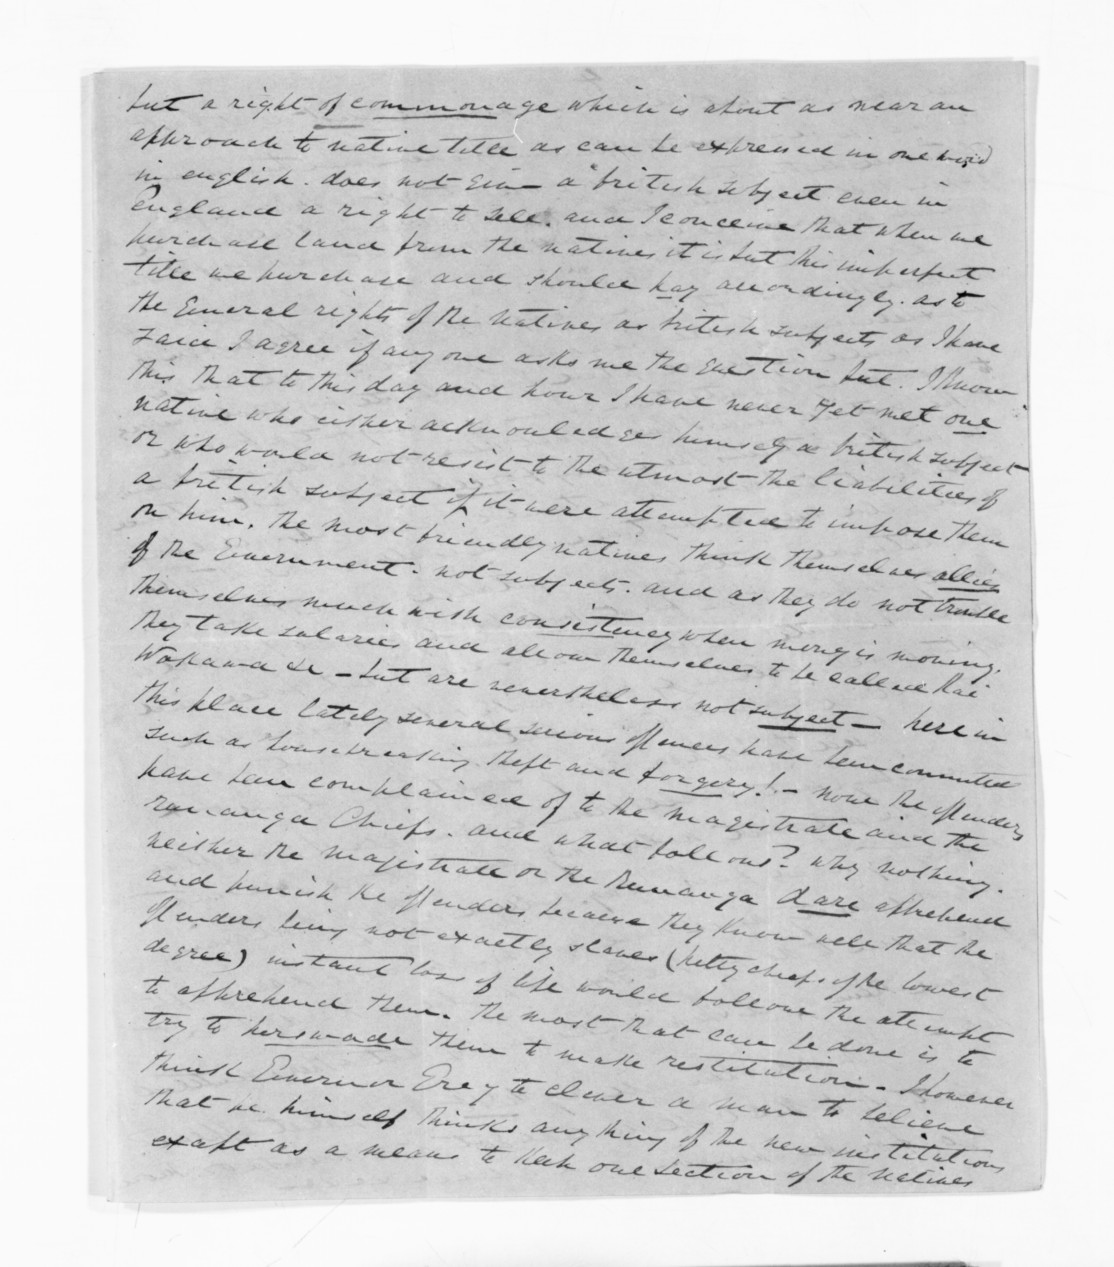 but a right of commonage which is about as near an
approach to native title as can be expressed in one word
in english. does not give a british subject even in
England a right to sell. and I conceive that when we
purchase land from the natives it is but this imperfect
title we purchase and should pay accordingly. as to
the general rights of the natives as british subjects as I have
said I agree if any one asks me the question but. I know
this that to this day and hour I have never yet met one
native who either acknowledges himself a british subject
or who would not resist to the utmost the liabilities of
a british subject if it were attempted to impose them
on him. the most friendly natives think themselves allies
of the Government. not subjects. and as they do not trouble
themselves much with consistency when money is moving.
they take salaries and allow themselves to be called Kai
Wakawa &c - but are nevertheless not subject - here in
this place lately several serious offences have been committed
such as housebreaking theft and forgery! - now the offenders
have been complained of to the magistrate and the
runanga Chiefs. and what follows? why nothing.
neither the magistrate or the Runanga dare apprehend
and punish the offenders because they know well that the
offenders being not exactly slaves (petty chiefs of the lowest
degree) instant loss of life would follow the attempt
to apprehend them. the most that can be done is to
try to perswade them to make restitution - I however
think Governor Grey to clever a man to believe
that he himself thinks any thing of the new institutions
exapt as a means to keek one section of the natives